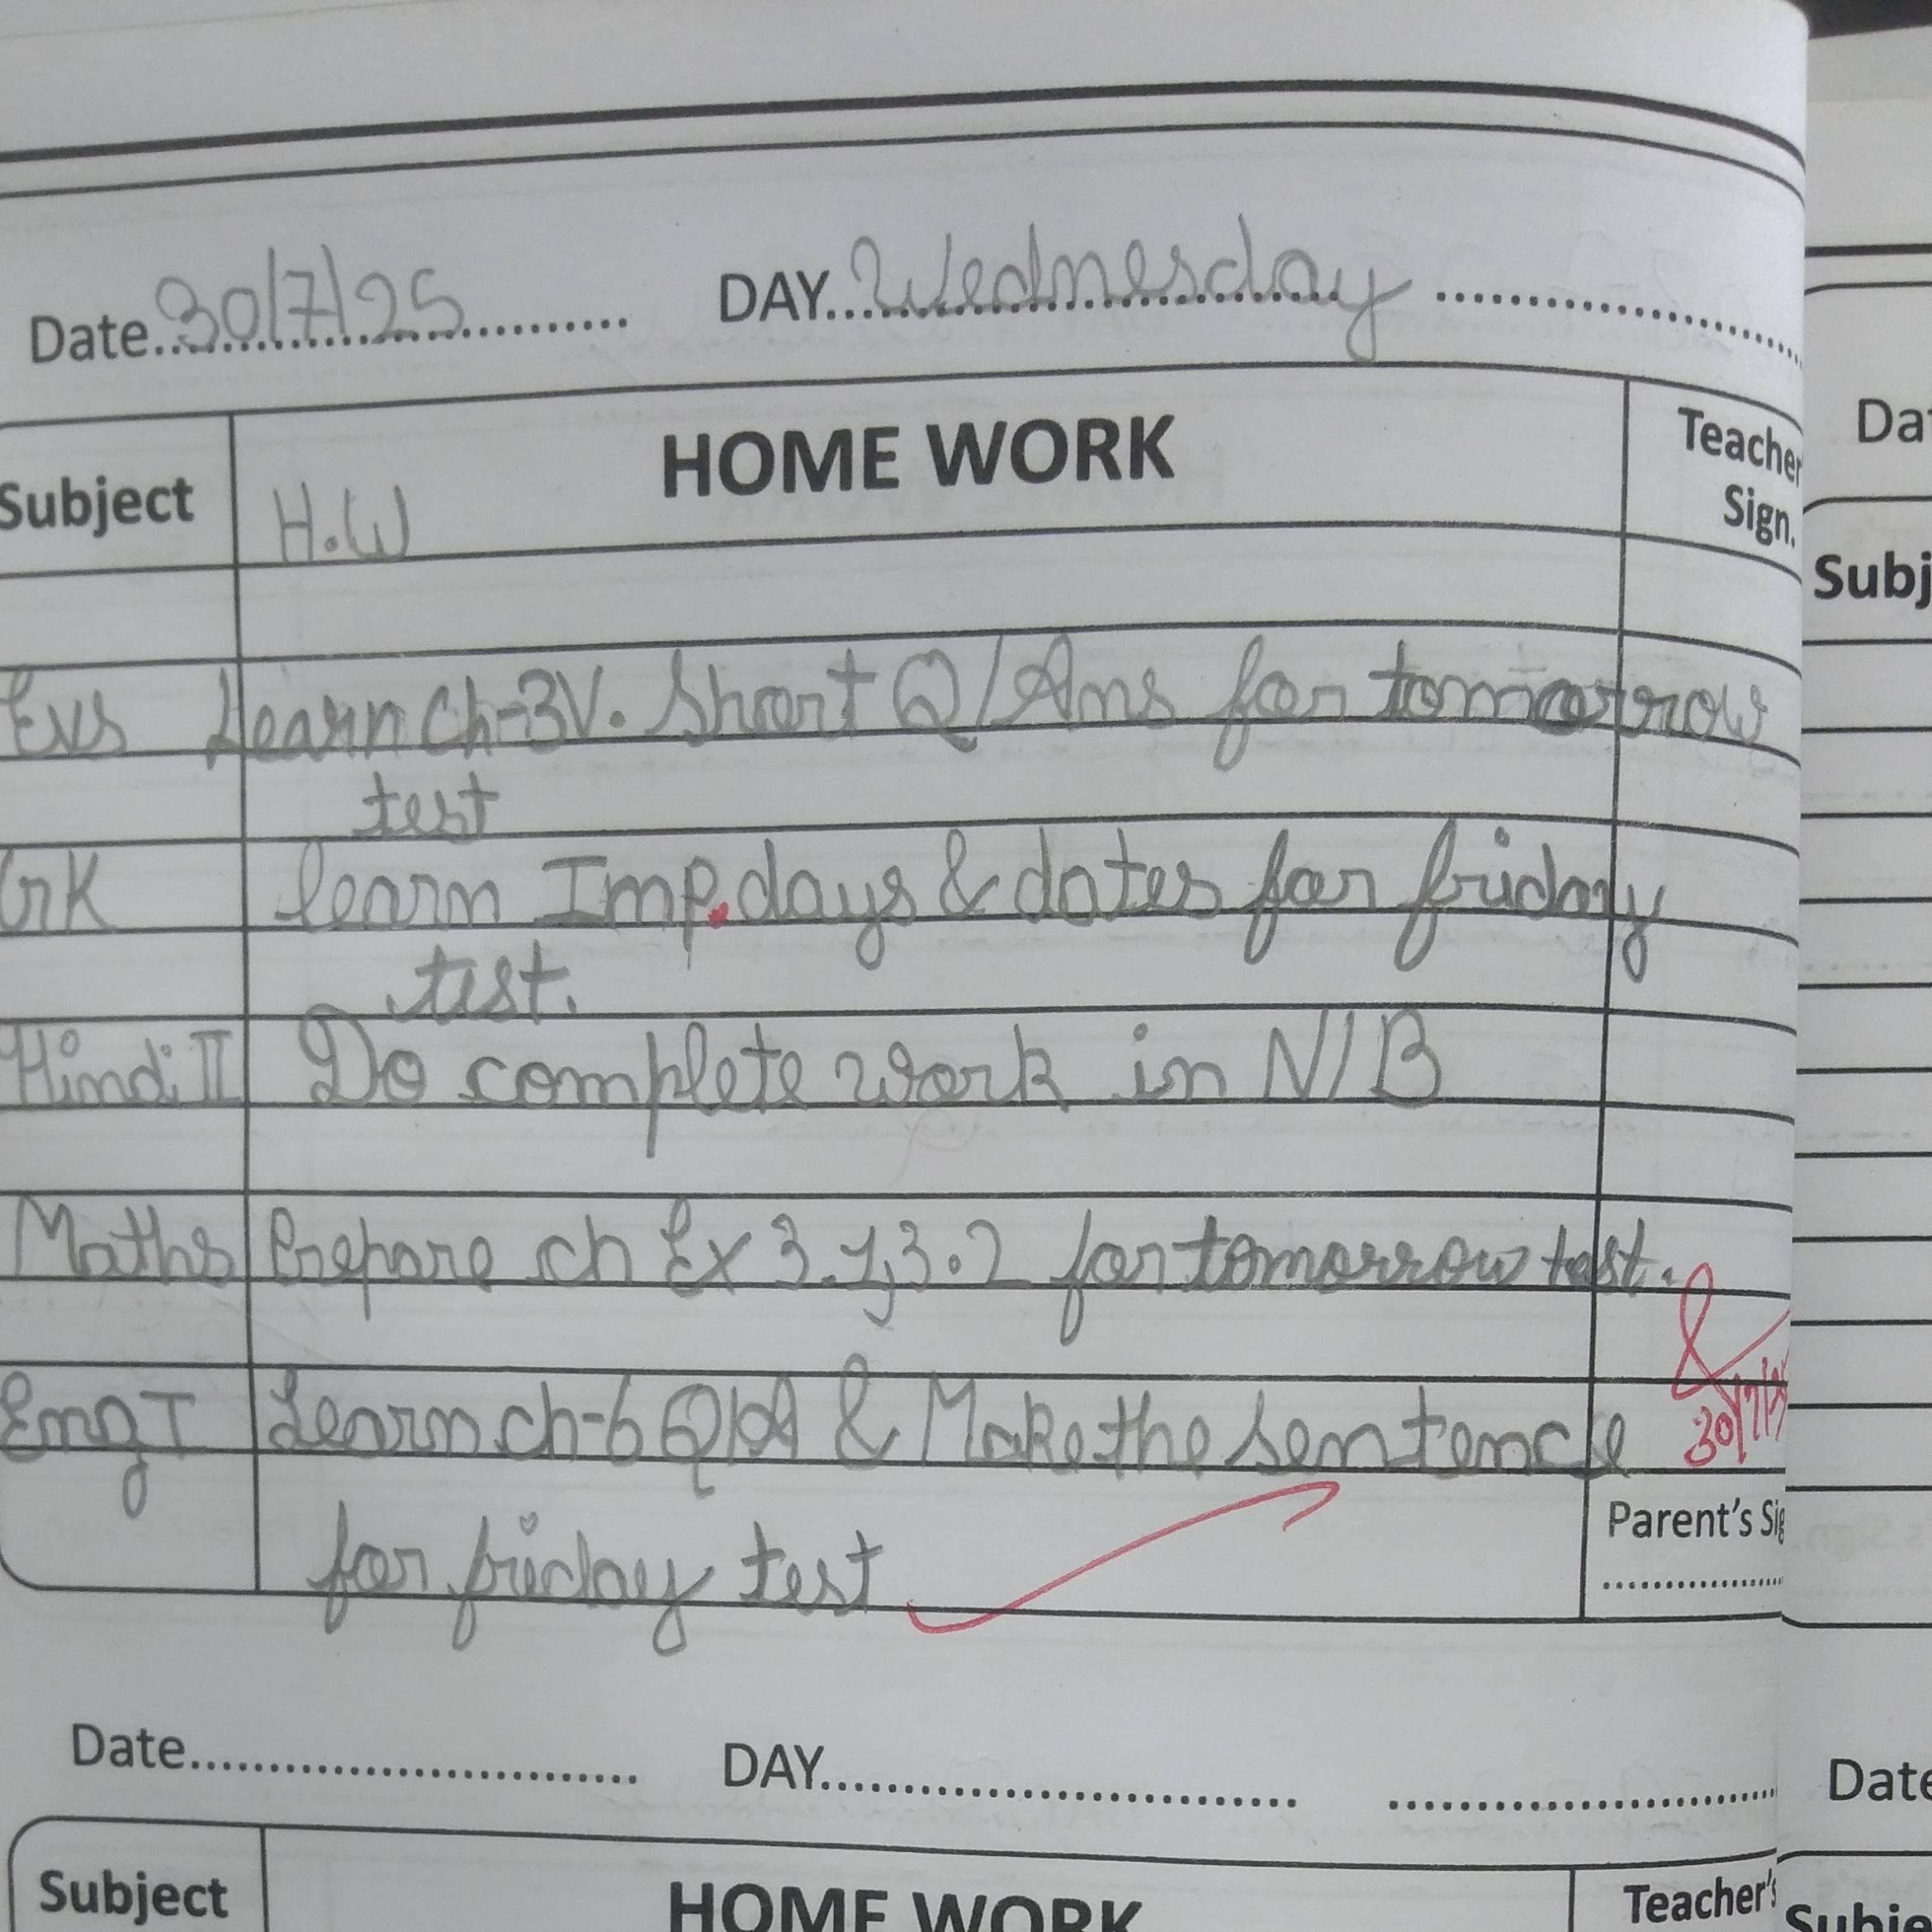 Date 30/7/25 DAY Wednesday
Subject HOME WORK Teacher
H.W Sign.
Evs Learn Ch-3 V. Short Q/Ans for tomorrow
test
GK learn Imp. days & dates for friday
test.
Hindi II Do complete work in N/B
Maths Prepare ch Ex 3.1, 3.2 for tomorrow test.
Eng I Learn ch-6 Q/A & Make the sentence 30/7/25
for friday test
Parent's Sig
Date DAY
Subject HOME WORK Teacher's
Da
Subj
Date
Subje